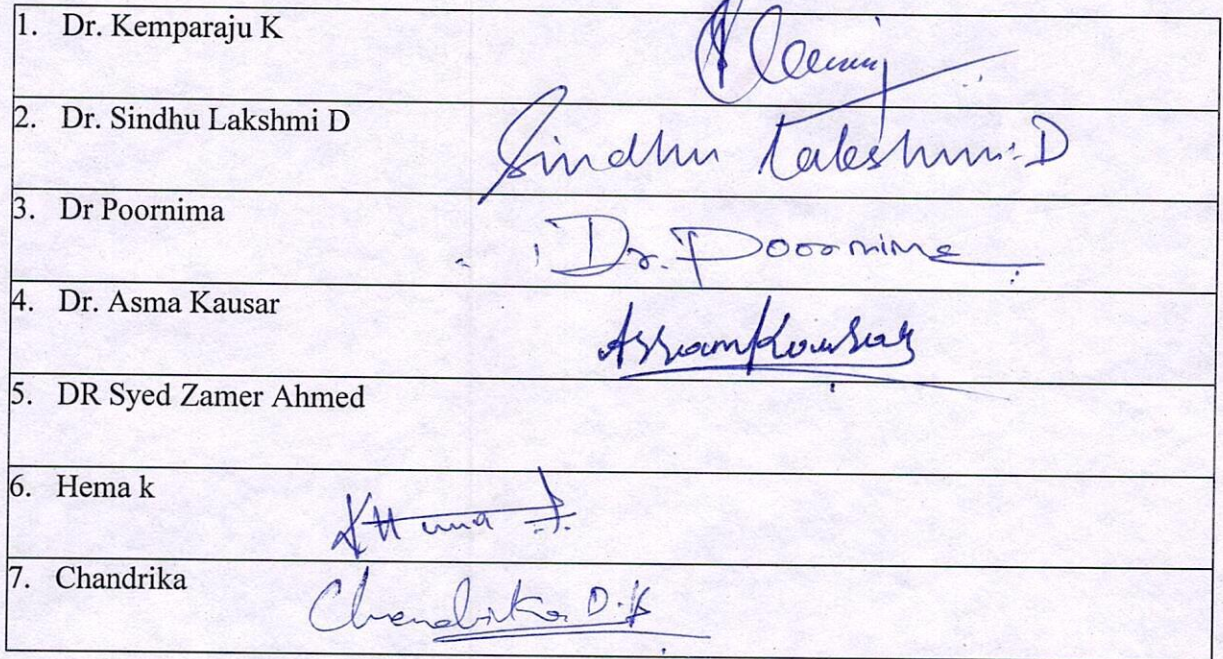 1. Dr. Kemparaju K
2. Dr. Sindhu Lakshmi D
Sindhu Lakshmi.D
3. Dr Poornima
Dr. Poornima
4. Dr. Asma Kausar
5. DR Syed Zamer Ahmed
6. Hema k
7. Chandrika
Chandrika D.K